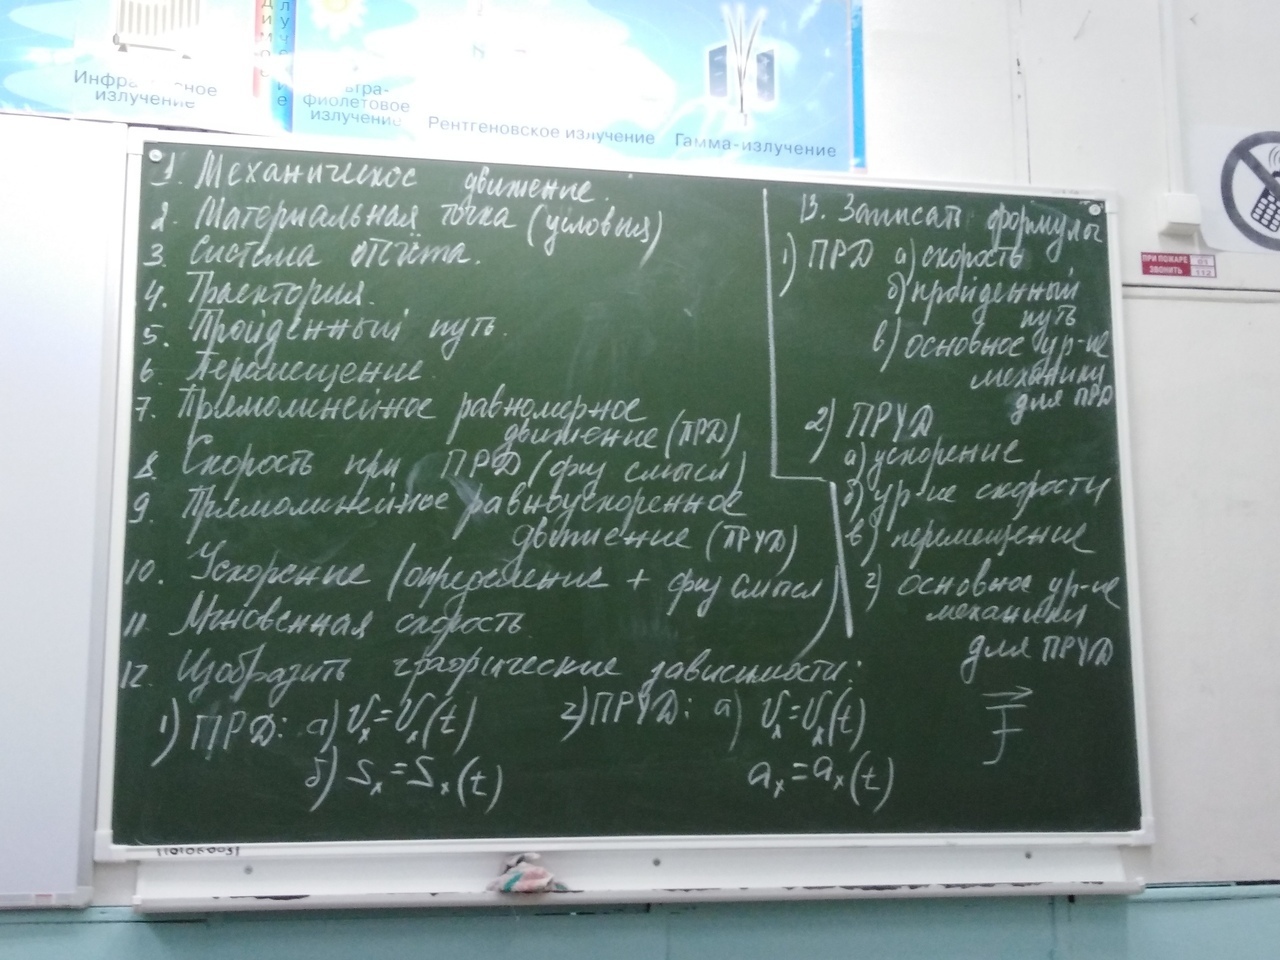 Инфра
ное
излучение
димое
излуче
тра-
фиолетовое
излучение
Рентгеновское излучение
Гамма-излучение
ПРИ ПОЖАРЕ
ЗВОНИТЬ
01
112
1. Механическое движение.
2. Материальная точка (условия)
3. Система отсчёта.
4. Траектория.
5. Пройденный путь.
6. Перемещение.
7. Прямолинейное равномерное
движение (ПРД)
8. Скорость при ПРД (физ смысл)
9. Прямолинейное равноускоренное
движение (ПРУД)
10. Ускорение (определение + физ смысл)
11. Мгновенная скорость
12. Изобразить графические зависимости:
1) ПРД: а) υₓ=υₓ(t)
б) Sₓ=Sₓ(t)
2) ПРУД: а) υₓ=υₓ(t)
aₓ=aₓ(t)
13. Записать формулы
1) ПРД а) скорость
б) пройденный
путь
в) основное ур-ие
механики
для ПРД
2) ПРУД
а) ускорение
б) ур-ие скорости
в) перемещение
г) основное ур-ие
механики
для ПРУД